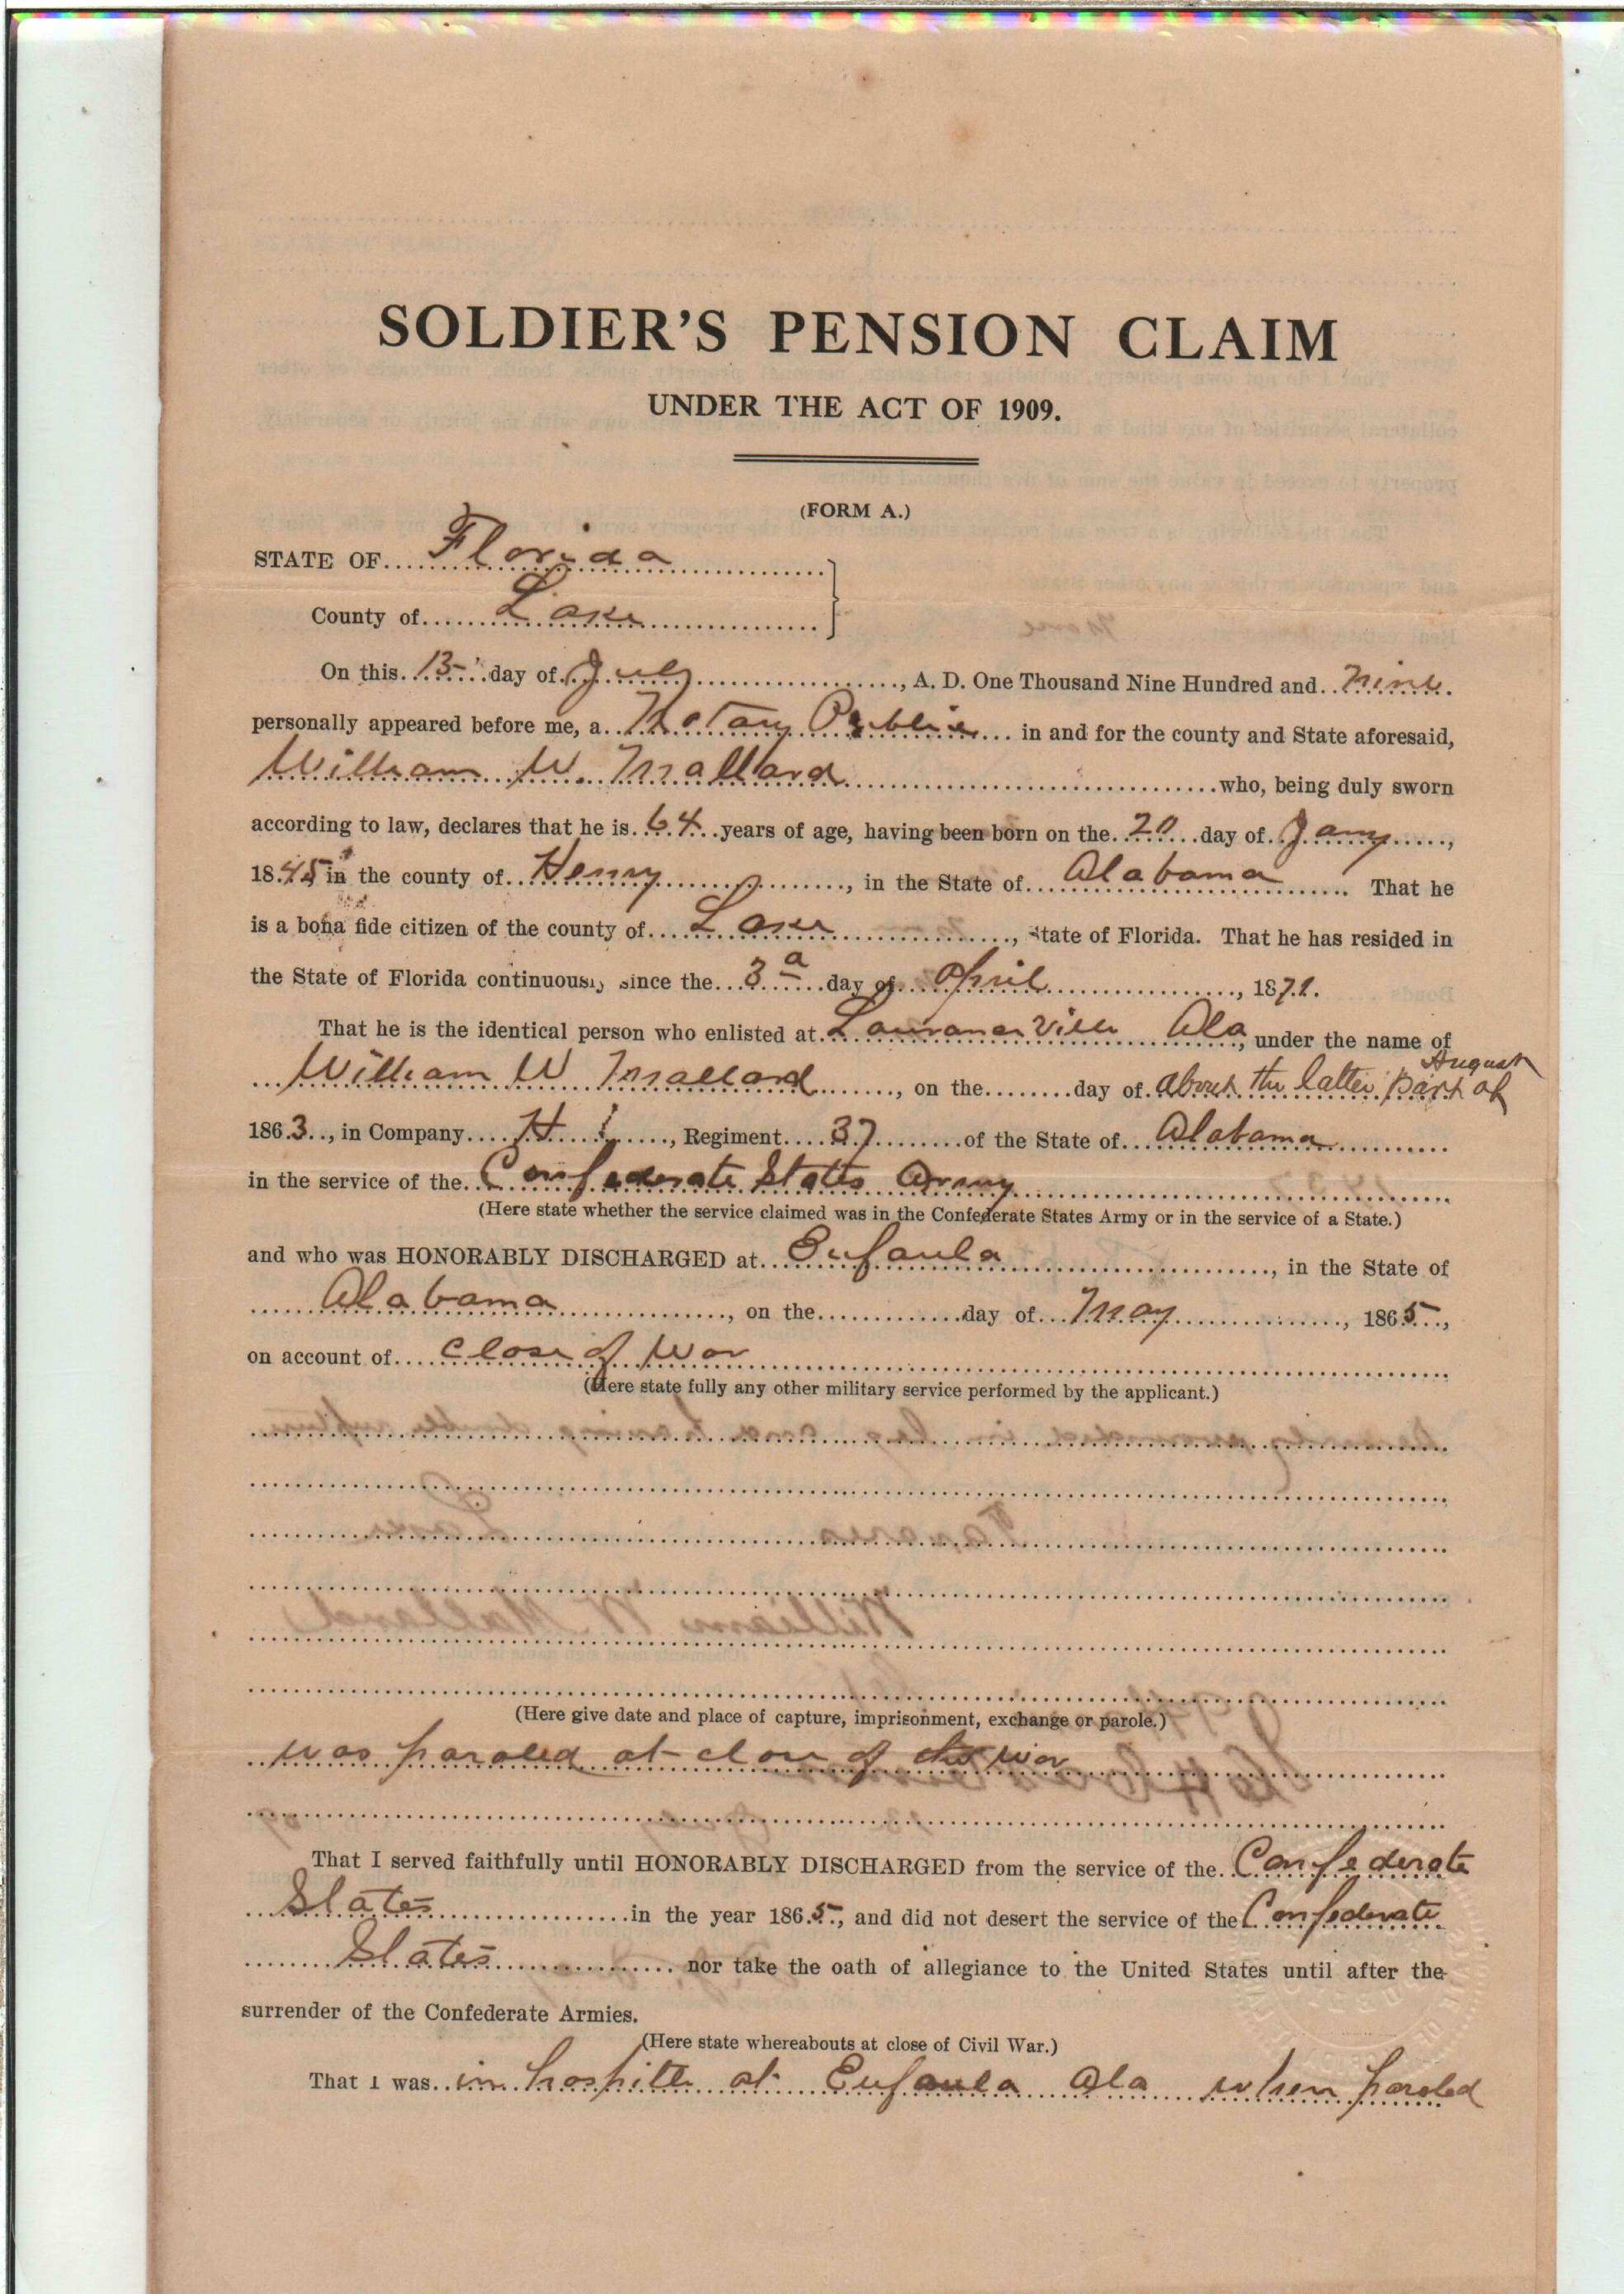 SOLDIER'S PENSION CLAIM
UNDER THE ACT OF 1909.
(FORM A.)
STATE OF Florida
County of Lake
On this 13 day of July, A. D. One Thousand Nine Hundred and nine
personally appeared before me, a Notary Public in and for the county and State aforesaid,
William W. Mallard who, being duly sworn
according to law, declares that he is 64 years of age, having been born on the 20 day of Jany,
1845 in the county of Henry, in the State of Alabama. That he
is a bona fide citizen of the county of Lake, State of Florida. That he has resided in
the State of Florida continuously since the 3d day of April, 1871.
That he is the identical person who enlisted at Ala, under the name of
William W Mallard, on the day of about the latter part of August
1863, in Company H, Regiment 37 of the State of Alabama
in the service of the Confederate States Army
(Here state whether the service claimed was in the Confederate States Army or in the service of a State.)
and who was HONORABLY DISCHARGED at Eufaula, in the State of
Alabama, on the day of May, 1865,
on account of close of War
(Here state fully any other military service performed by the applicant.)
(Here give date and place of capture, imprisonment, exchange or parole.)
was paroled at close of the war
That I served faithfully until HONORABLY DISCHARGED from the service of the Confederate
States in the year 1865, and did not desert the service of the Confederate
States nor take the oath of allegiance to the United States until after the
surrender of the Confederate Armies.
(Here state whereabouts at close of Civil War.)
That I was in hospitle at Eufaula Ala when paroled